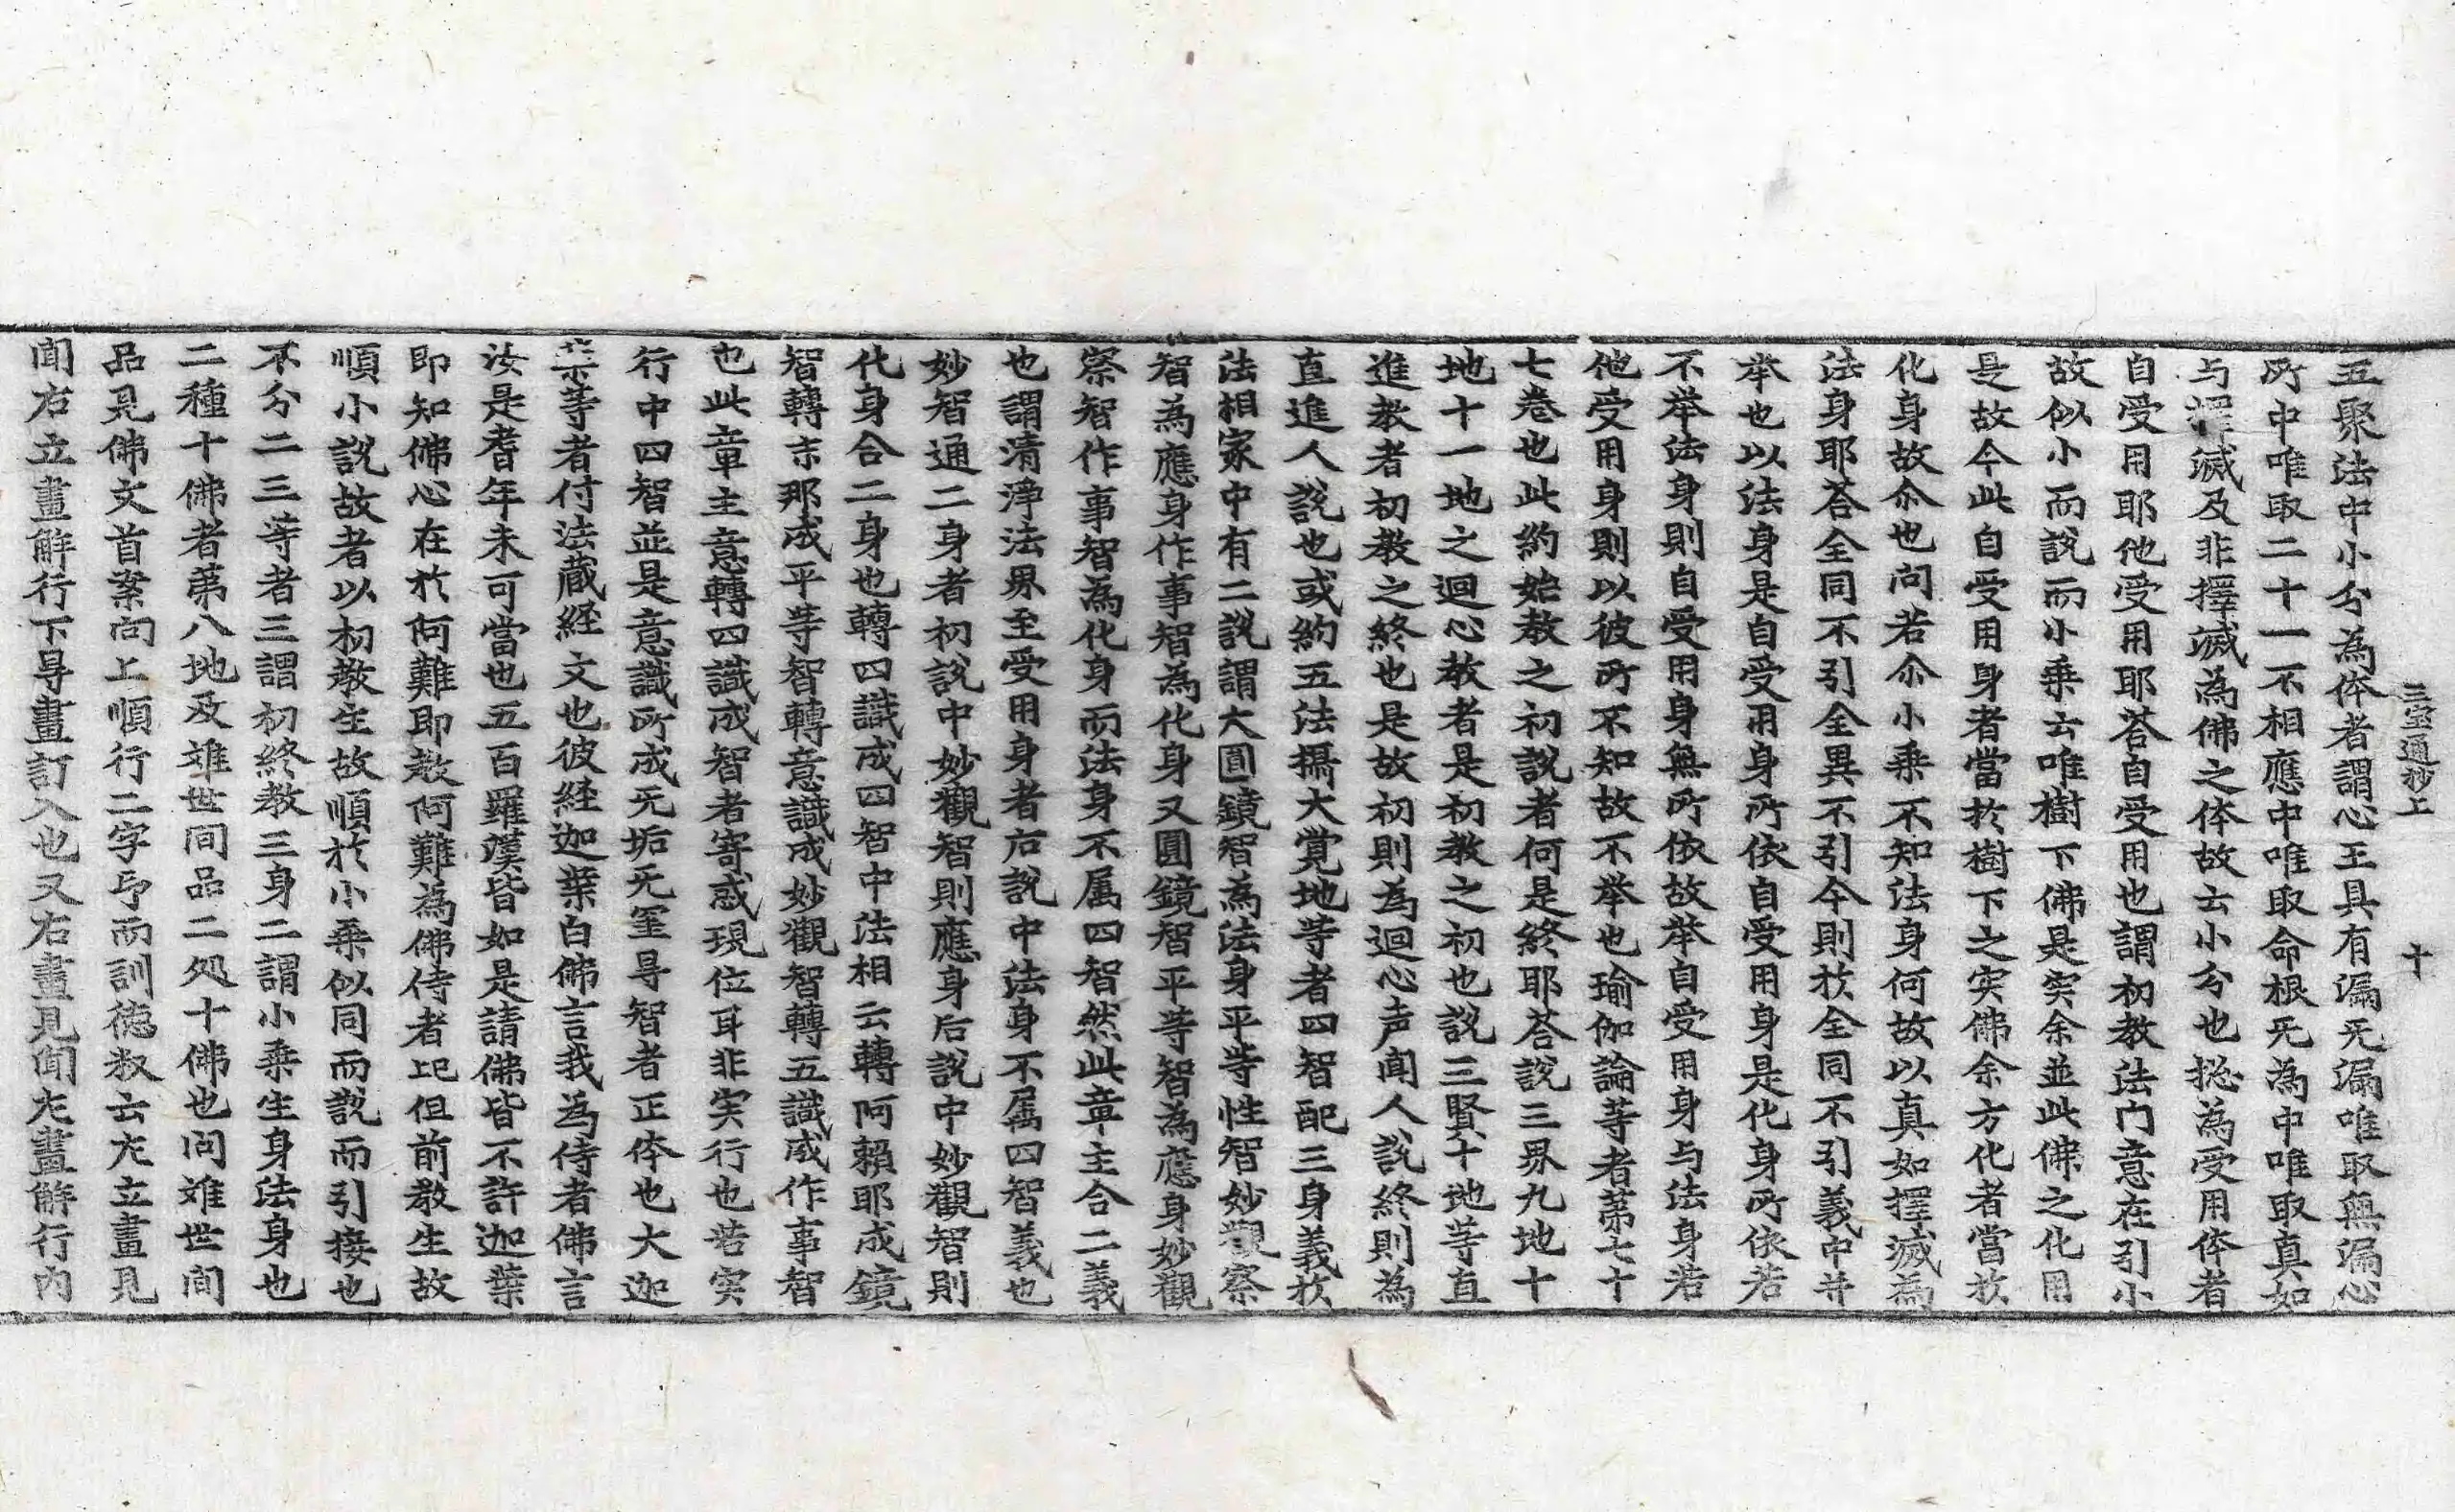 三宝通抄上　十
五聚法中小分為体者謂心王具有漏无漏唯取無漏心
所中唯取二十一不相應中唯取命根无為中唯取真如
与擇滅及非擇滅為佛之体故云小分也捴為受用体者
自受用耶他受用耶荅自受用也謂初教法门意在引小
故似小而説而小乗云唯樹下佛是実余並此佛之化用
是故今此自受用身者當扵樹下之実佛余方化者當扵
化身故尒也问若尒小乗不知法身何故以真如擇滅為
法身耶荅全同不引全異不引今則扵全同不引義中并
举也以法身是自受用身所依自受用身是化身所依若
不举法身則自受用身無所依故举自受用身与法身若
他受用身則以彼所不知故不举也瑜伽論等者苐七十
七巻也此約始教之初説者何是終耶荅説三界九地十
地十一地之迴心教者是初教之初也説三賢十地等直
進教者初教之終也是故初則為迴心声闻人説終則為
直進人説也或約五法攝大覺地等者四智配三身義扵
法相家中有二説謂大圓鏡智為法身平等性智妙觀察
智為應身作事智為化身又圓鏡智平等智為應身妙觀
察智作事智為化身而法身不属四智然此章主合二義
也謂清淨法界至受用身者后説中法身不属四智義也
妙智通二身者初説中妙觀智則應身后説中妙觀智則
化身合二身也轉四識成四智中法相云轉阿頼耶成鏡
智轉末那成平等智轉意識成妙觀智轉五識成作事智
也此章主意轉四識成智者寄惑現位耳非実行也若実
行中四智並是意識所成成无垢无罣㝵智者正体也大迦
葉等者付法蔵経文也彼経迦葉白佛言我為侍者佛言
汝是耆年未可當也五百羅漢皆如是請佛皆不許迦葉
即知佛心在扵阿難即教阿難為佛侍者圯但前教生故
順小説故者以初教生故順扵小乗似同而説而引接也
不分二三等者三謂初終教三身二謂小乗生身法身也
二種十佛者苐八地及难世间品二処十佛也问难世间
品見佛文首案向上順行二字卬而訓徳叔云左立畫見
闻右立畫解行下㝵畫訂入也又右畫見闻左畫解行内